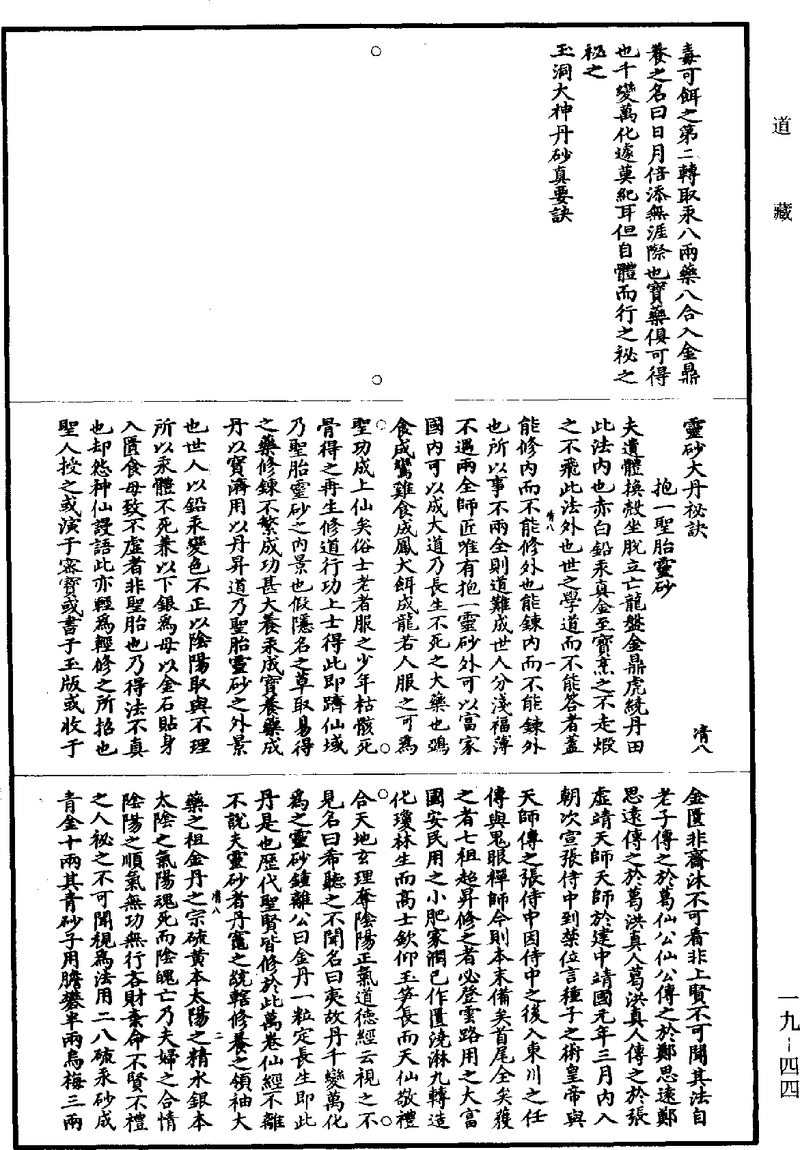 道藏
毒可餌之第二轉取汞八兩藥八合入金鼎
養之名曰日月倍添無涯際也寶藥俱可得
也千變萬化遽莫紀耳但自體而行之祕之
祕之
玉洞大神丹砂真要訣
靈砂大丹祕訣 清八
抱一聖胎靈砂
夫遺體換殼坐脫立亡龍盤金鼎虎繞丹田
此法內也赤白鉛汞真金至寶烹之不走煅
之不飛此法外也世之學道而不能荅者蓋
能修內而不能修外也能鍊內而不能鍊外
也所以事不兩全則道難成世人分淺福薄
不遇兩全師匠唯有抱一靈砂外可以富家
國內可以成大道乃長生不死之大藥也鴉
食成鸞雞食成鳳犬餌成龍若人服之可為
聖功成上仙矣俗士老者服之少年枯骸死
骨得之再生修道行功上士得此即躋仙域
乃聖胎靈砂之內景也假隱名之草取易得
之藥修鍊不繁成功甚大養汞成寶養藥成
丹以寶濟用以丹昇道乃聖胎靈砂之外景
也世人以鉛汞變色不正以陰陽取與不理
所以汞體不死兼以下銀為母以金石貼身
入匱食母致不虛者非聖胎也乃得法不真
也却怨神仙謾語此亦輕為輕修之所招也
聖人授之或演于密寶或書于玉版或收于
清八 一
金匱非齋沐不可看非上賢不可聞其法自
老子傳之於葛仙公仙公傳之於鄭思遠鄭
思遠傳之於葛洪真人葛洪真人傳之於張
虛靖天師天師於建中靖國元年三月內入
朝次宣張侍中到禁位言種子之術皇帝與
天師傳之張侍中因侍中之後入東川之任
傳與鬼眼禪師今則本末備矣首尾全矣獲
之者七祖超昇修之者必登雲路用之大富
國安民用之小肥家潤已作匱澆淋九轉造
化瓊林生而高士欽仰玉笋長而天仙敬禮
合天地玄理奪陰陽正氣道德經云視之不
見名曰希聽之不聞名曰夷故丹千變萬化
為之靈砂鍾離公曰金丹一粒定長生即此
丹是也歷代聖賢皆修於此萬卷仙經不離
不說夫靈砂者丹竈之統轄修養之領袖大
清八 二
藥之祖金丹之宗硫黃本太陽之精水銀本
太陰之氣陽魂死而陰魄亡乃夫婦之合情
陰陽之順氣無功無行吝財棄命不賢不禮
之人祕之不可聞視為法用二八硫汞砂成
青金十兩其青砂子用膽礬半兩烏梅三兩
一九-四四